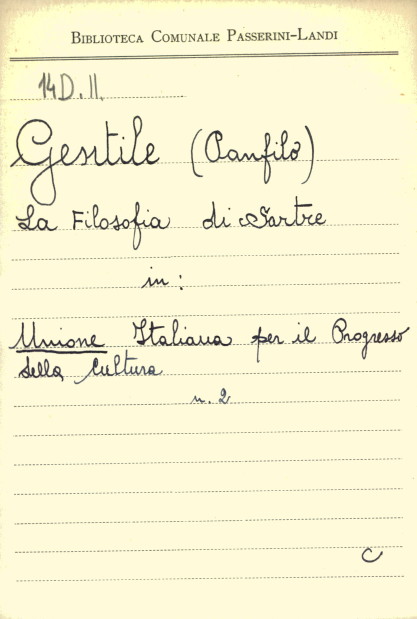 BIBLIOTECA COMUNALE PASSERINI-LANDI
14D.II.
Gentile (Panfilo)
La Filosofia di Sartre
in:
Unione Italiana per il Progresso
della Cultura
n. 2
C